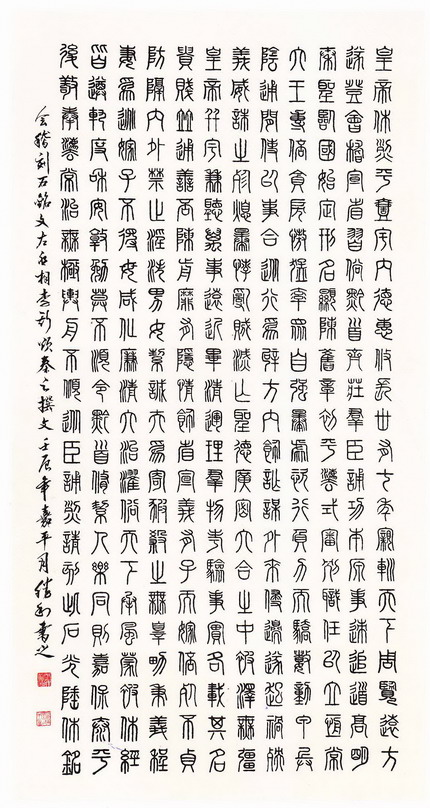 皇帝休烈平壹宇內德惠攸長卅有七年親軔天下周覽遠方
遂登會稽宣省習俗黔首齊莊羣臣誦功本原事迹追道高明
秦聖臨國始定刑名顯陳舊章初平灋式審別職任以立恆常
六王專倍貪戾慠猛率眾自強暴虐恣行負力而驕數動甲兵
陰通閒使以事合從行為辟方內飾詐謀外來侵邊遂起禍殃
義威誅之殄熄暴悖亂賊滅亡聖德廣密六合之中被澤無疆
皇帝并宇兼聽萬事遠近畢清運理羣物考驗事實各載其名
貴賤並通善否陳前靡有隱情飾省宣義有子而嫁倍死不貞
防隔內外禁止淫泆男女絜誠夫為寄豭殺之無辠男秉義程
妻為逃嫁子不得母咸化廉清大治濯俗天下承風蒙被休經
皆遵軌度和安敦勉莫不順令黔首脩絜人樂同則嘉保泰平
後敬奉灋常治無極輿舟不傾從臣誦烈請刻此石光陲休銘
会稽刻石銘文左丞相李斯頌秦之撰文壬辰年嘉平月書之